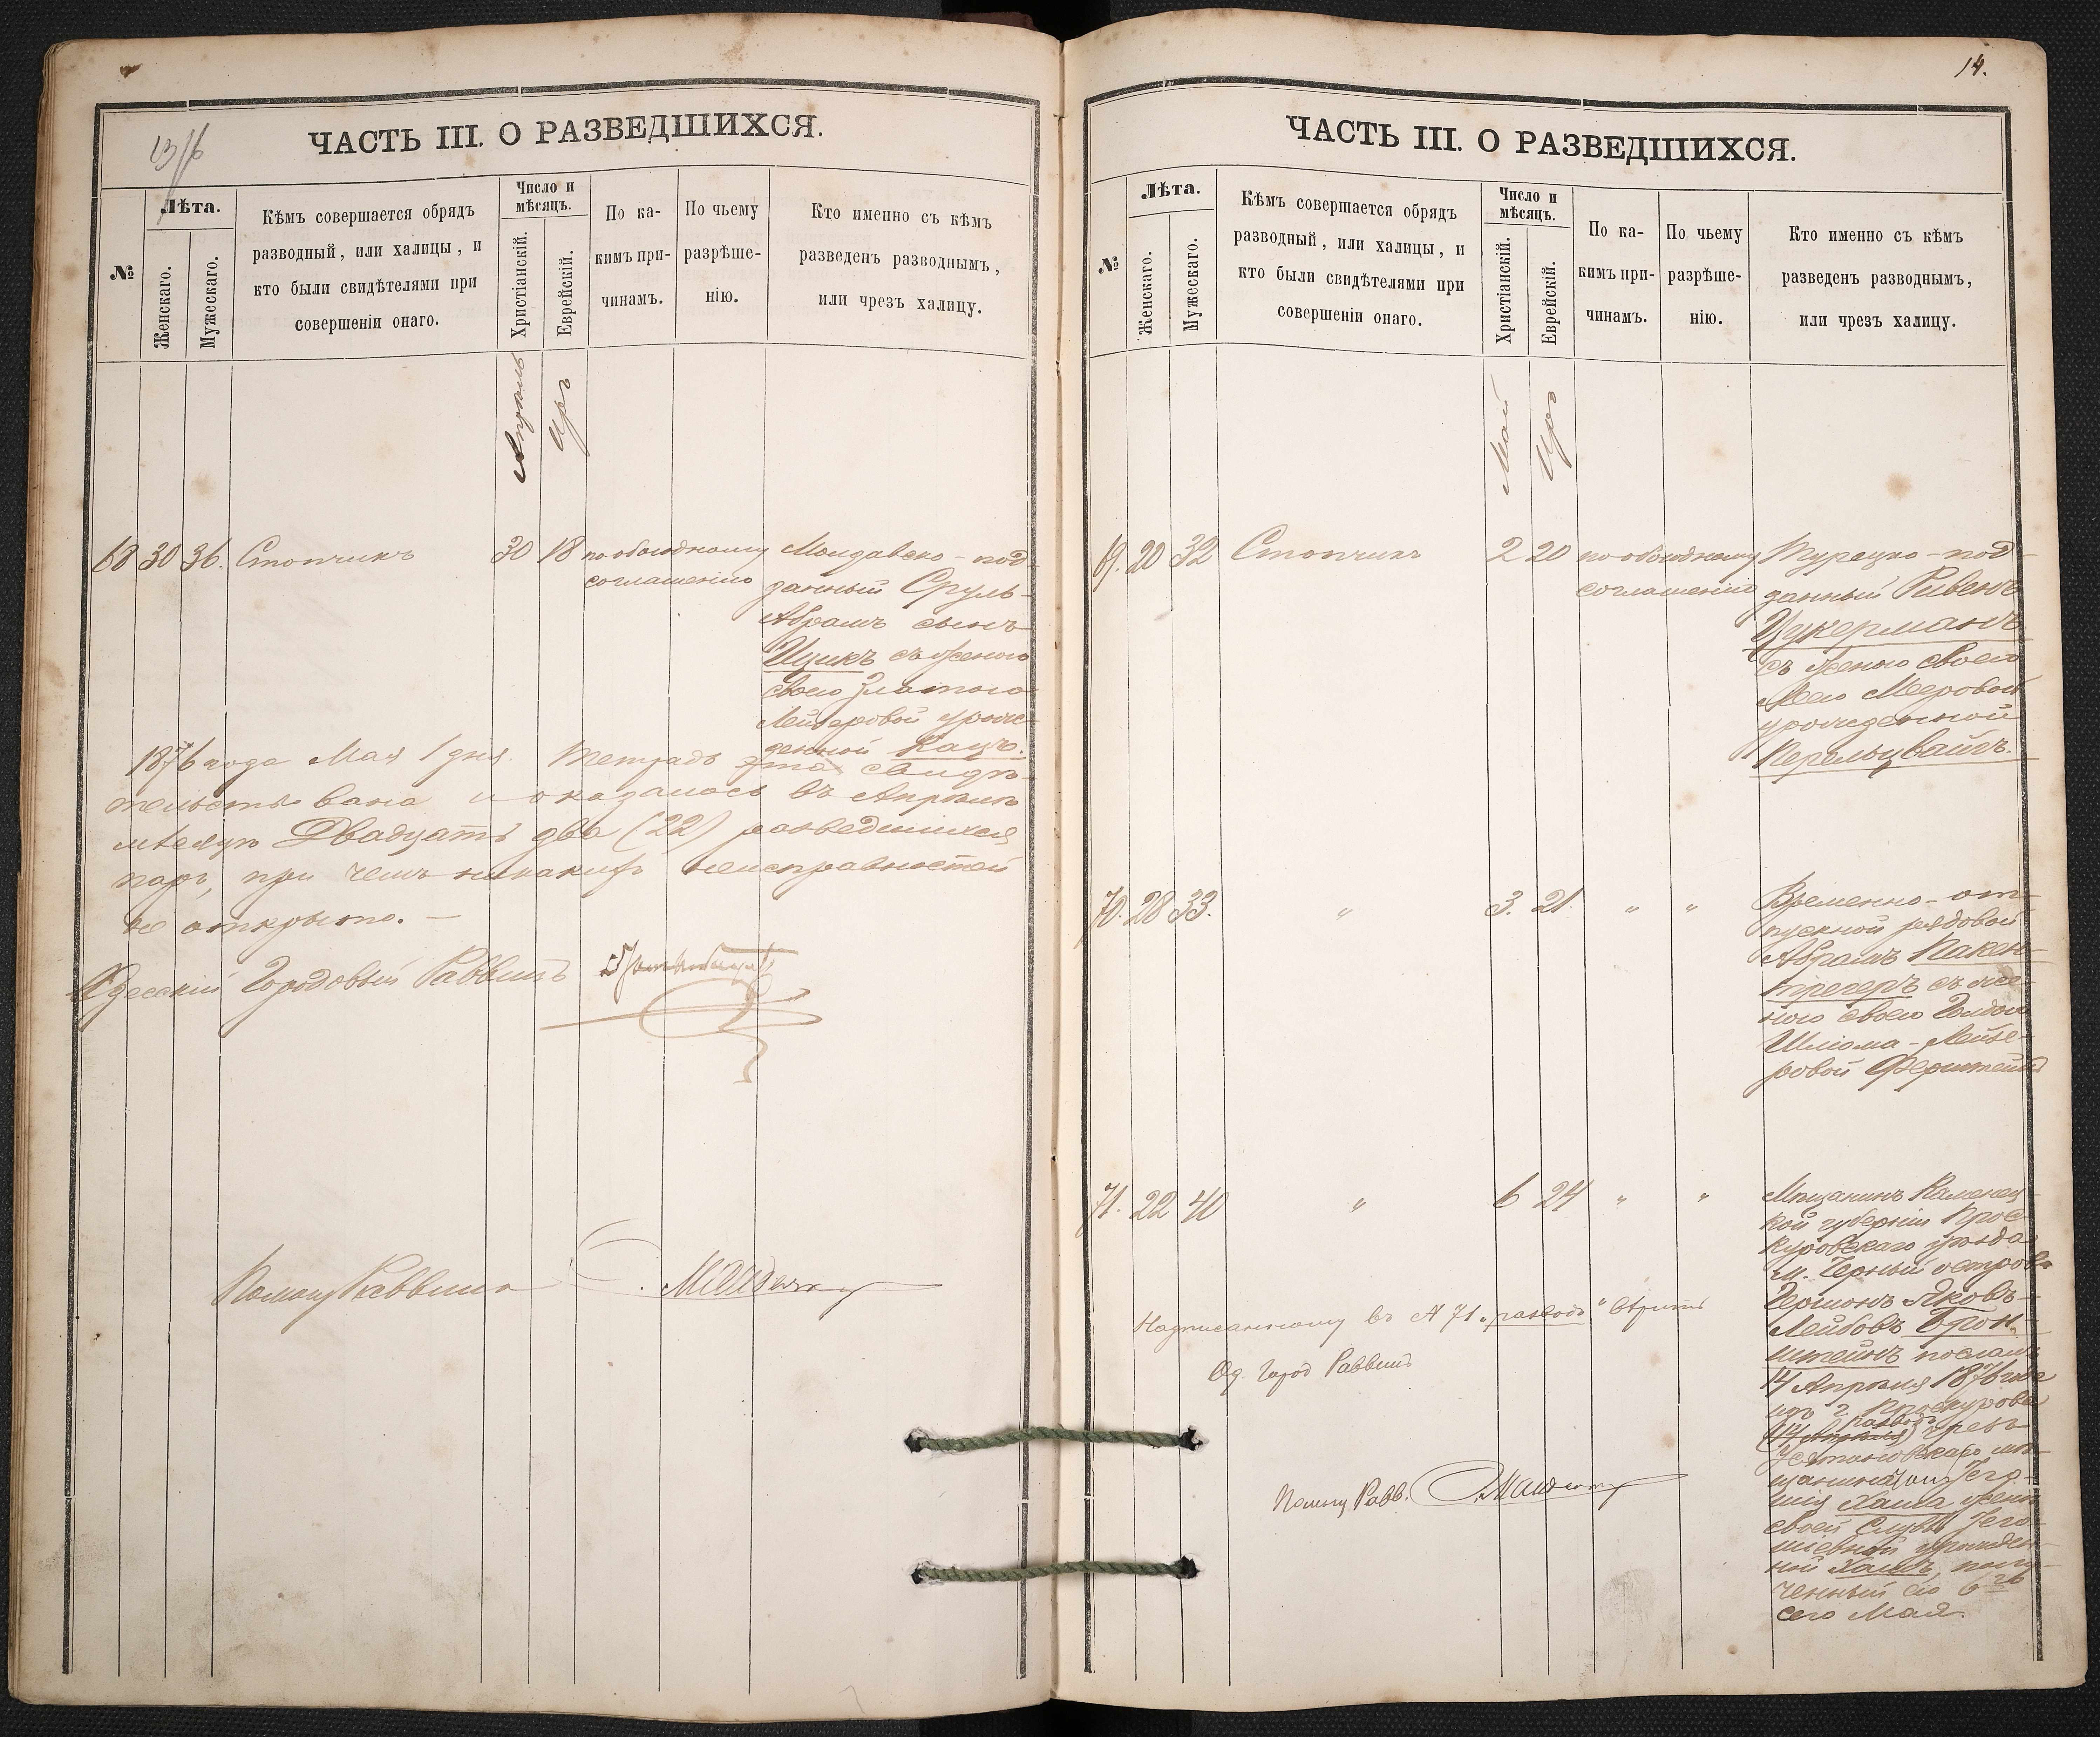 13/6
ЧАСТЬ III. О РАЗВЕДШИХСЯ.
№
Лѣта.
Женскаго.
Мужескаго.
Кѣмъ совершается обрядъ
разводный, или халицы, и
кто были свидѣтелями при
совершеніи онаго.
Число и
мѣсяцъ.
Христіанскій.
Еврейскій.
По ка-
кимъ при-
чинамъ.
По чьему
разрѣше-
нію.
Кто именно съ кѣмъ
разведенъ разводнымъ,
или чрезъ халицу.
Апрѣль
Иръ
68 30 36. Стопчикъ 30 18 по обоюдному
соглашенію
Молдавско-под-
данный Сруль-
Абрамъ сынъ
Ицикъ съ женою
своею Златою
Лейзеровой урож-
денной Кацъ.
1876 года Мая 1 дня. Тетрадь эта свидѣ-
тельствована и оказалось въ Апрѣлѣ
мѣсяцѣ Двадцать два (22) разведшихся
паръ, при чемъ никакихъ неисправностей
не открыто. —
Одесскій Городовый Раввинъ
Помощ Раввина
14.
ЧАСТЬ III. О РАЗВЕДШИХСЯ.
№
Лѣта.
Женскаго.
Мужескаго.
Кѣмъ совершается обрядъ
разводный, или халицы, и
кто были свидѣтелями при
совершеніи онаго.
Число и
мѣсяцъ.
Христіанскій.
Еврейскій.
По ка-
кимъ при-
чинамъ.
По чьему
разрѣше-
нію.
Кто именно съ кѣмъ
разведенъ разводнымъ,
или чрезъ халицу.
Май
Иръ
69. 20 32 Стопчикъ 2 20 по обоюдному
соглашенію
Турецко-под-
данный Ривенъ
Цукерманъ
съ женою своею
Леею Мееровой
урожденной
Перельцвайгъ.
70. 28 33. " 3. 21 " "
Временно-от-
пускной рядовой
Абрамъ Пакен-
трегеръ съ же-
ною своею Голдою
Шлиома-Лейзе-
ровой Ферштейнъ
71. 22 40 " 6 24 " "
Мѣщанинъ Каменец-
кой губерніи Прос-
куровскаго уѣзда
м. Черный островъ
Гершонъ Яковъ-
Лейбовъ Брон-
штейнъ послалъ
14 Апрѣля 1876 года
изъ г Проскурова
разводъ
чрезъ
мѣ-
щанина
женѣ
своей
урожден-
ной полу-
ченный ею 6го
сего Мая.
Надписанному въ № 71 "разводъ" вѣрить
Од. Город Раввинъ
Помощ Равв.